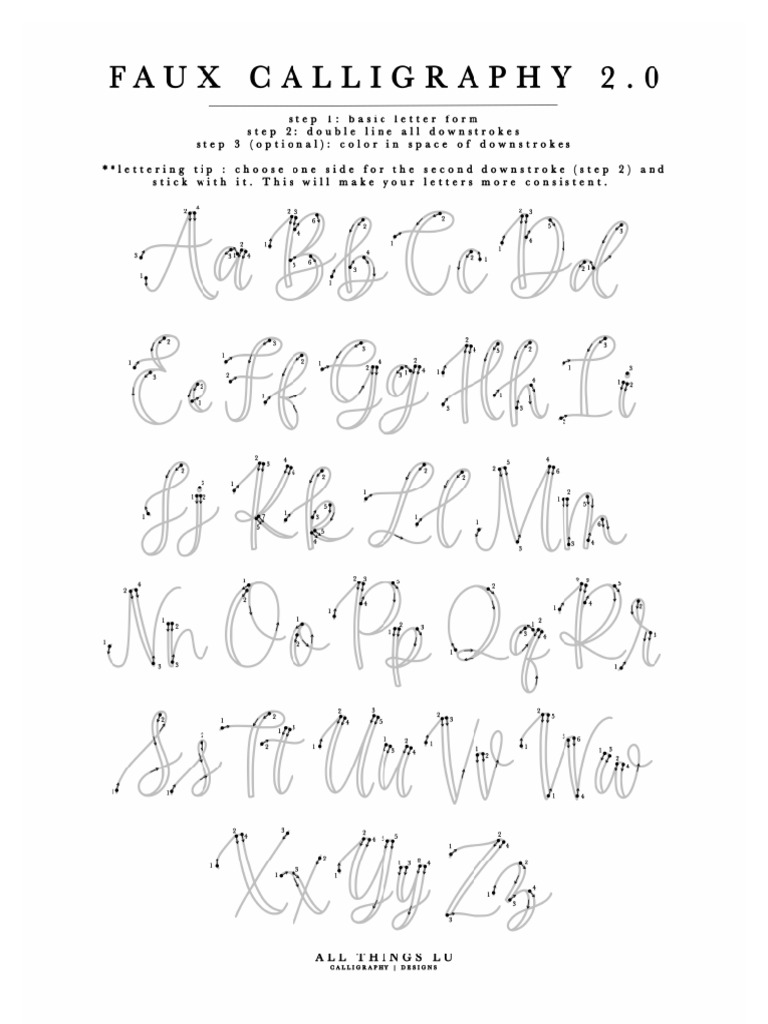 FAUX CALLIGRAPHY 2.0
step 1: basic letter form
step 2: double line all downstrokes
step 3 (optional): color in space of downstrokes
**lettering tip : choose one side for the second downstroke (step 2) and
stick with it. This will make your letters more consistent.
Aa Bb Cc Dd
Ee Ff Gg Hh Ii
Jj Kk Ll Mm
Nn Oo Pp Qq Rr
Ss Tt Uu Vv Ww
Xx Yy Zz
ALL THINGS LU
CALLIGRAPHY | DESIGNS